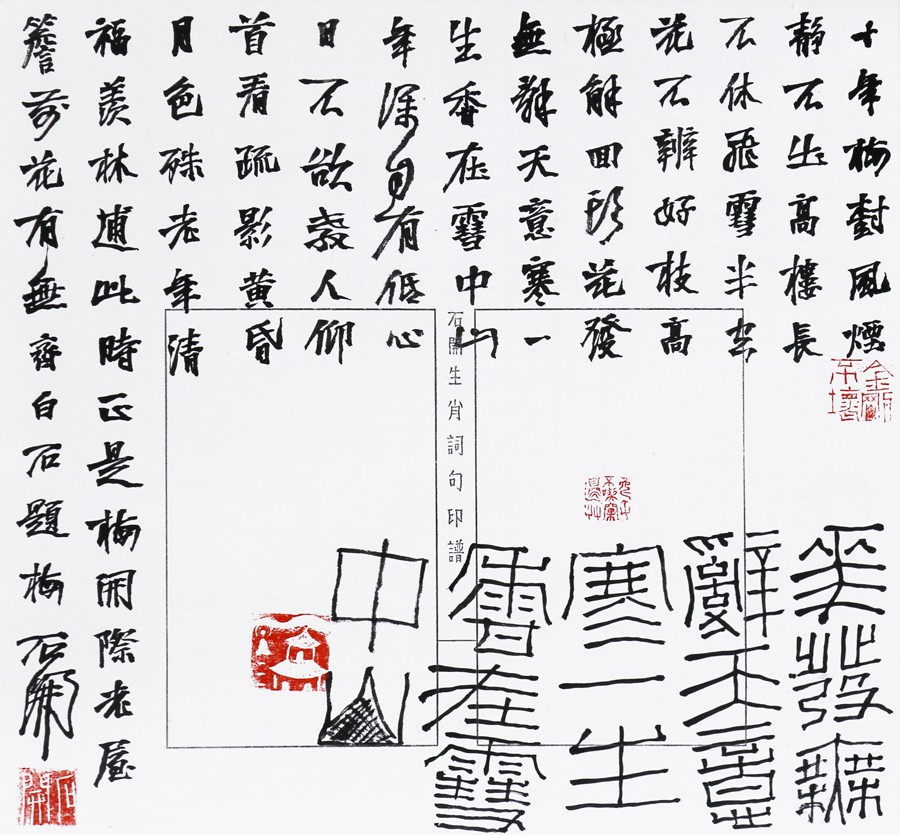 十年梅對風煙
靜不出高樓長
不休飛雪半空
花不辨好枝高
極解回頭花發
無辭天意寒一
生香在雪中山
年深自有低心
日不欲教人仰
首看疏影黃昏
月色殊老年清
福羨林逋此時正是梅開際老屋
簷前花有無齊白石題梅 石開
金剛不壞
兔子不喫窩邊艸
石開生肖詞句印譜
華發無
辭天意
寒一生
香在雪
中山
石開